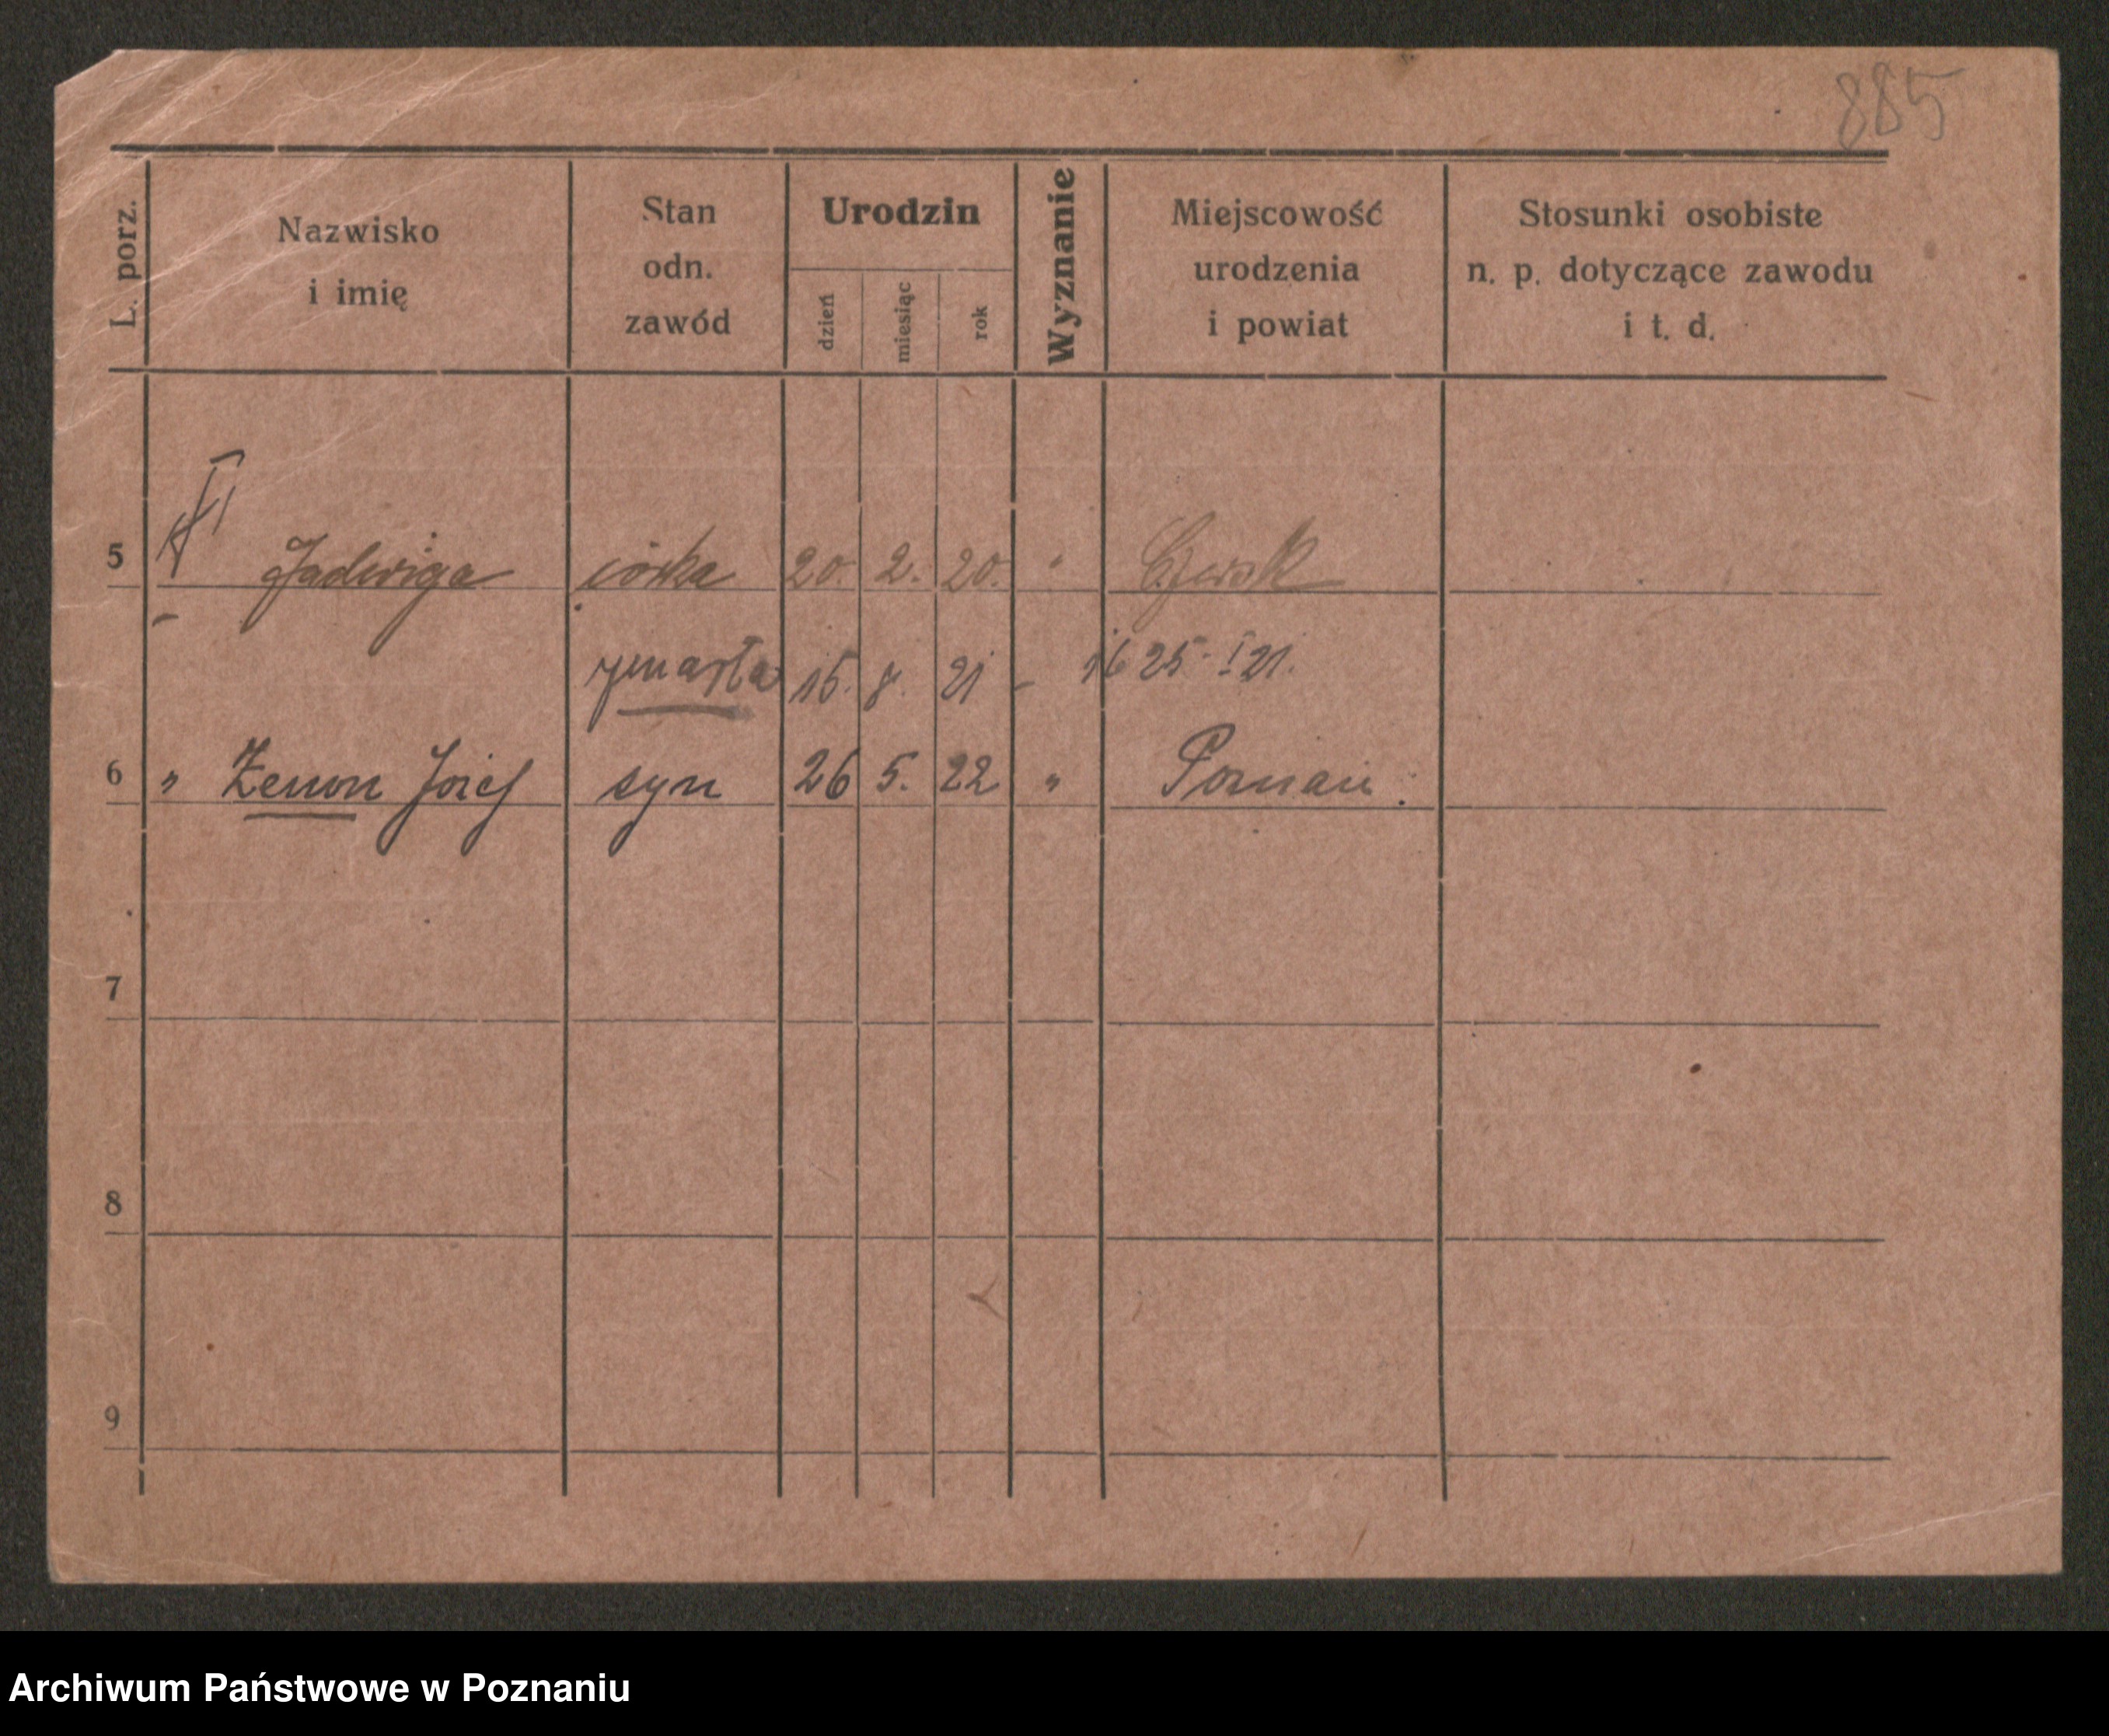 885
L. porz.
Nazwisko
i imię
Stan
odn.
zawód
Urodzin
dzień
miesiąc
rok
Wyznanie
Miejscowość
urodzenia
i powiat
Stosunki osobiste
n. p. dotyczące zawodu
i t. d.
5 Jadwiga córka 20. 2. 20. " Czersk
zmarła 15. 8. 21 – 25. I 21.
6 " Zenon Józef syn 26 5. 22 " Poznań.
7
8
9
Archiwum Państwowe w Poznaniu